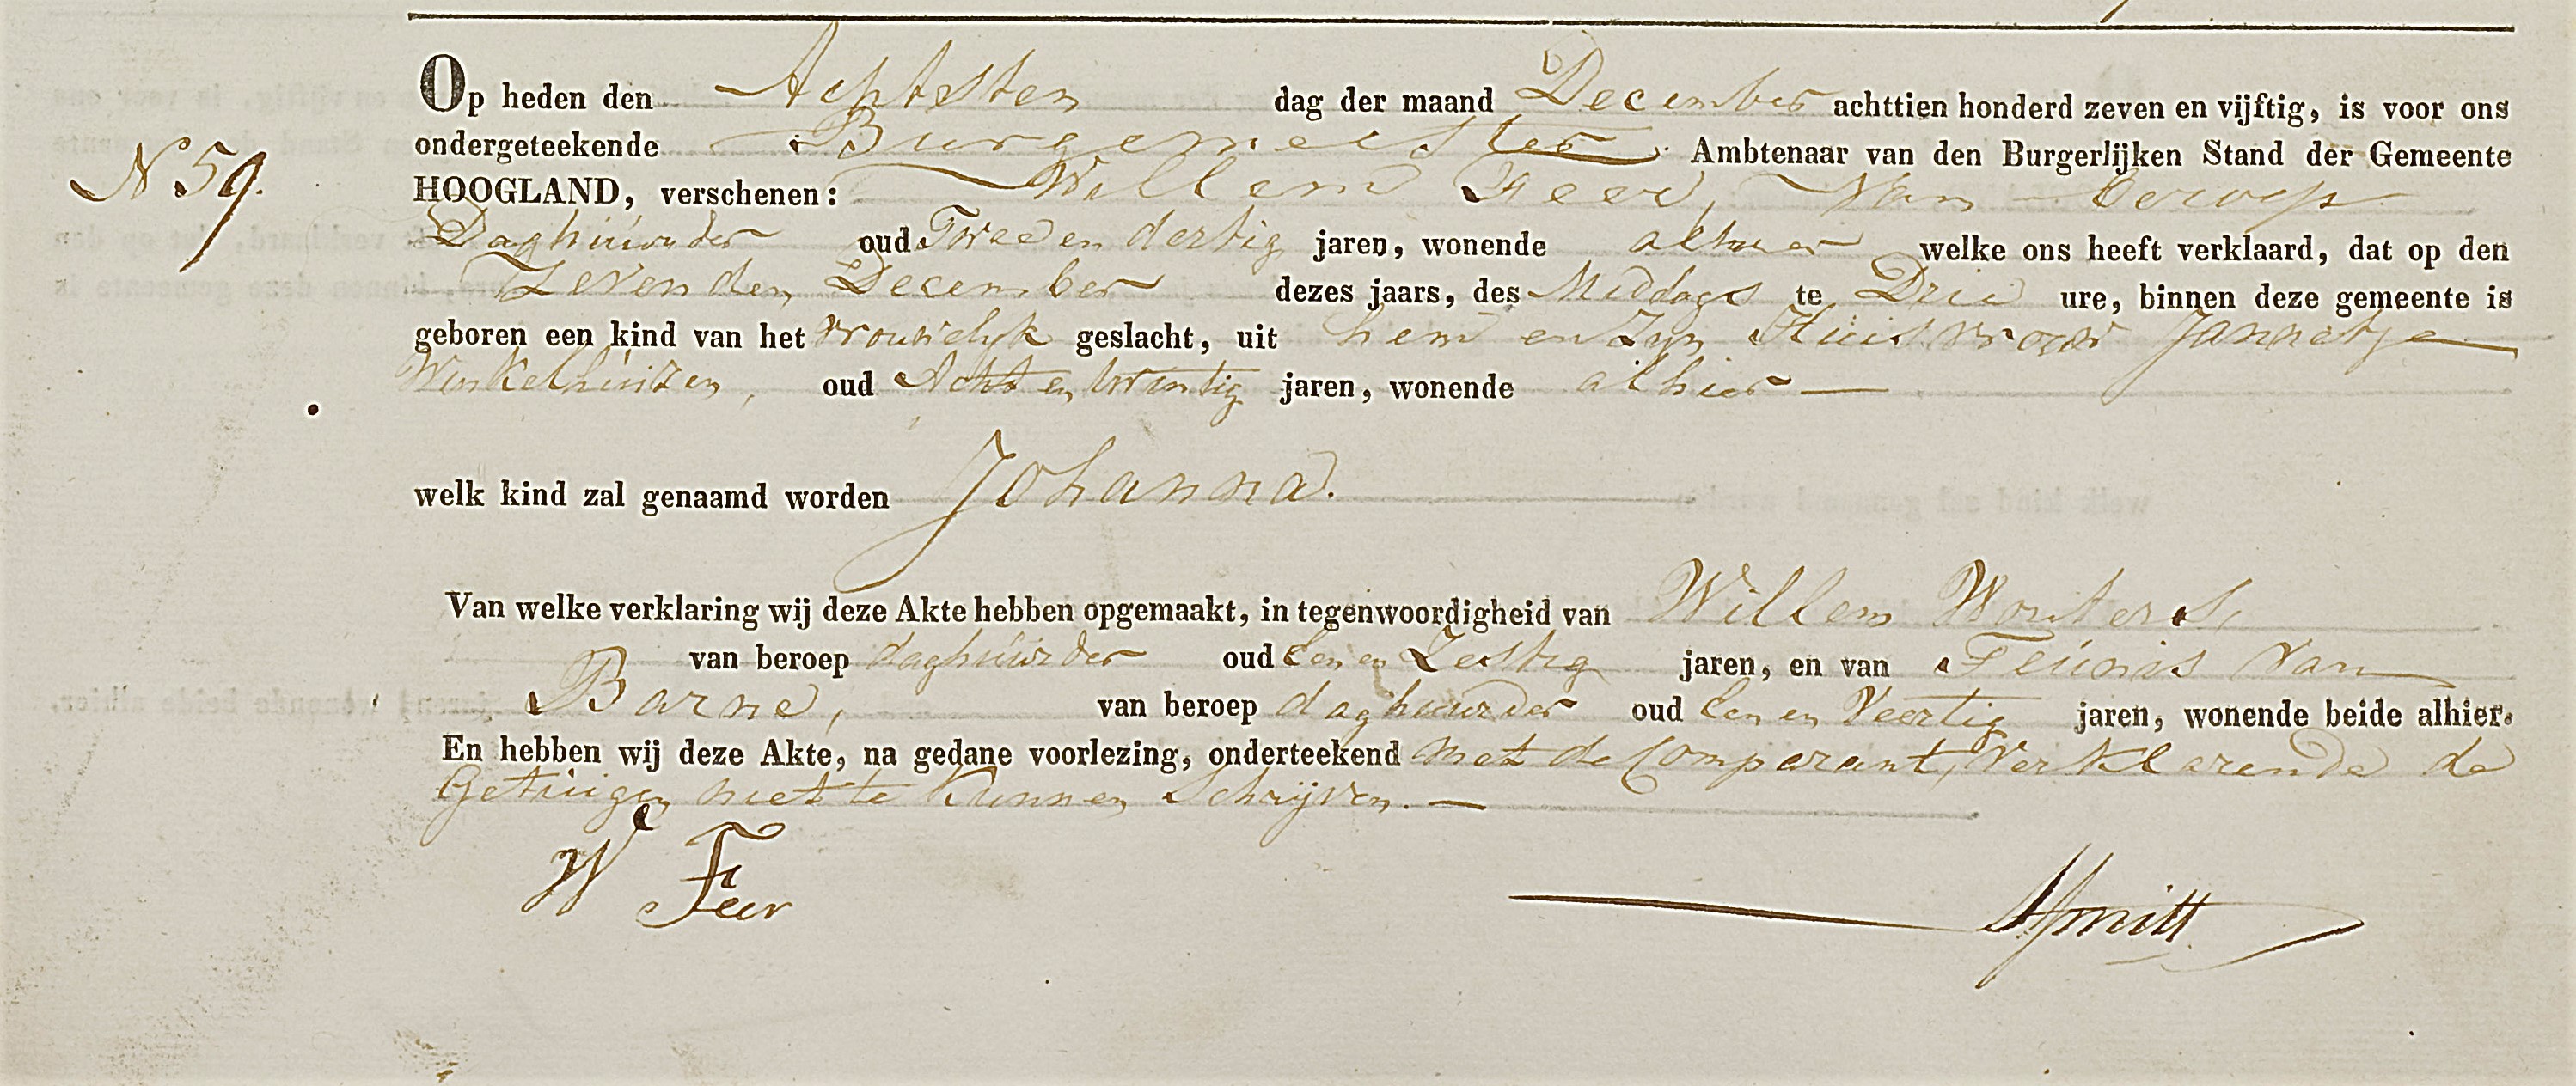 Op heden den Achtsten dag der maand December achttien honderd zeven en vijftig, is voor ons
ondergeteekende Burgemeester Ambtenaar van den Burgerlijken Stand der Gemeente
N 59.
HOOGLAND, verschenen: Willem Feer, Van beroep
Daghuurder oud Twee en dertig jaren, wonende alhier welke ons heeft verklaard, dat op den
Zevenden December dezes jaars, des Middags te Drie ure, binnen deze gemeente is
geboren een kind van het Vrouwelyk geslacht, uit hem en Zyn Huisvrouw Jannetje
Winkelhuizen, oud Acht en twintig jaren, wonende alhier —
welk kind zal genaamd worden Johanna.
Van welke verklaring wij deze Akte hebben opgemaakt, in tegenwoordigheid van Willem Wouters,
van beroep daghuurder oud Een en Zestig jaren, en van Teunis van
Barne, van beroep daghuurder oud Een en Veertig jaren, wonende beide alhier.
En hebben wij deze Akte, na gedane voorlezing, onderteekend met de Comparant, Verklarende de
Getuigen niet te Kunnen Schrijven. —
W Feer Smitt